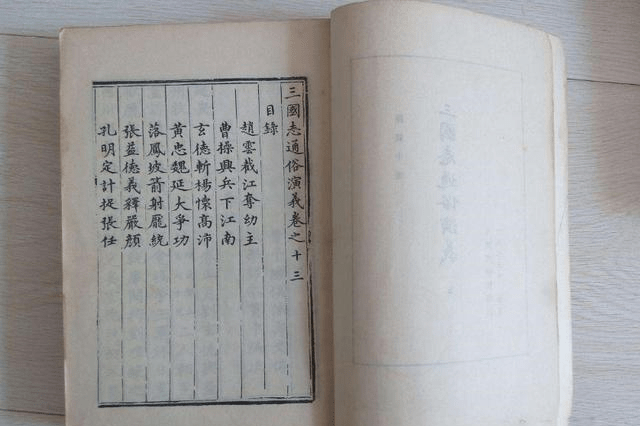 三國志通俗演義
三國志通俗演義卷之十三
目錄
趙雲截江奪幼主
曹操興兵下江南
玄德斬楊懷高沛
黃忠魏延大爭功
落鳳坡箭射龐統
張益德義釋嚴顏
孔明定計捉張任